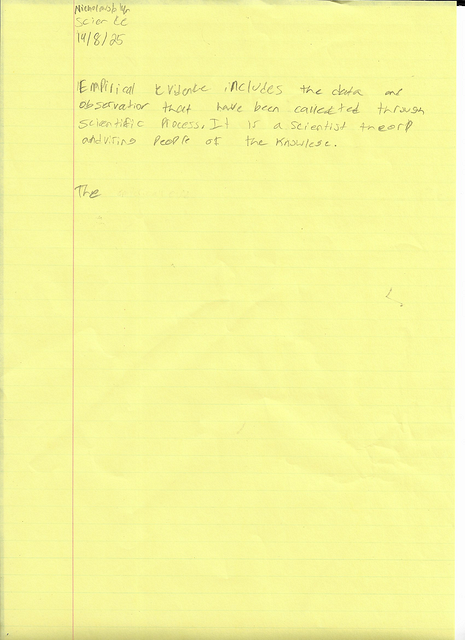 Science
14/8/25
Empirical Evidence includes the data and
observation that have been collected through
scientific process. It is a scientist theory
people of the knowlege.
The